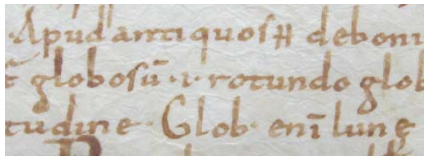 ·Apud antiquos H debonı
t̄ globosū· ı· rotundo glob
tudine· Glob· enī lune